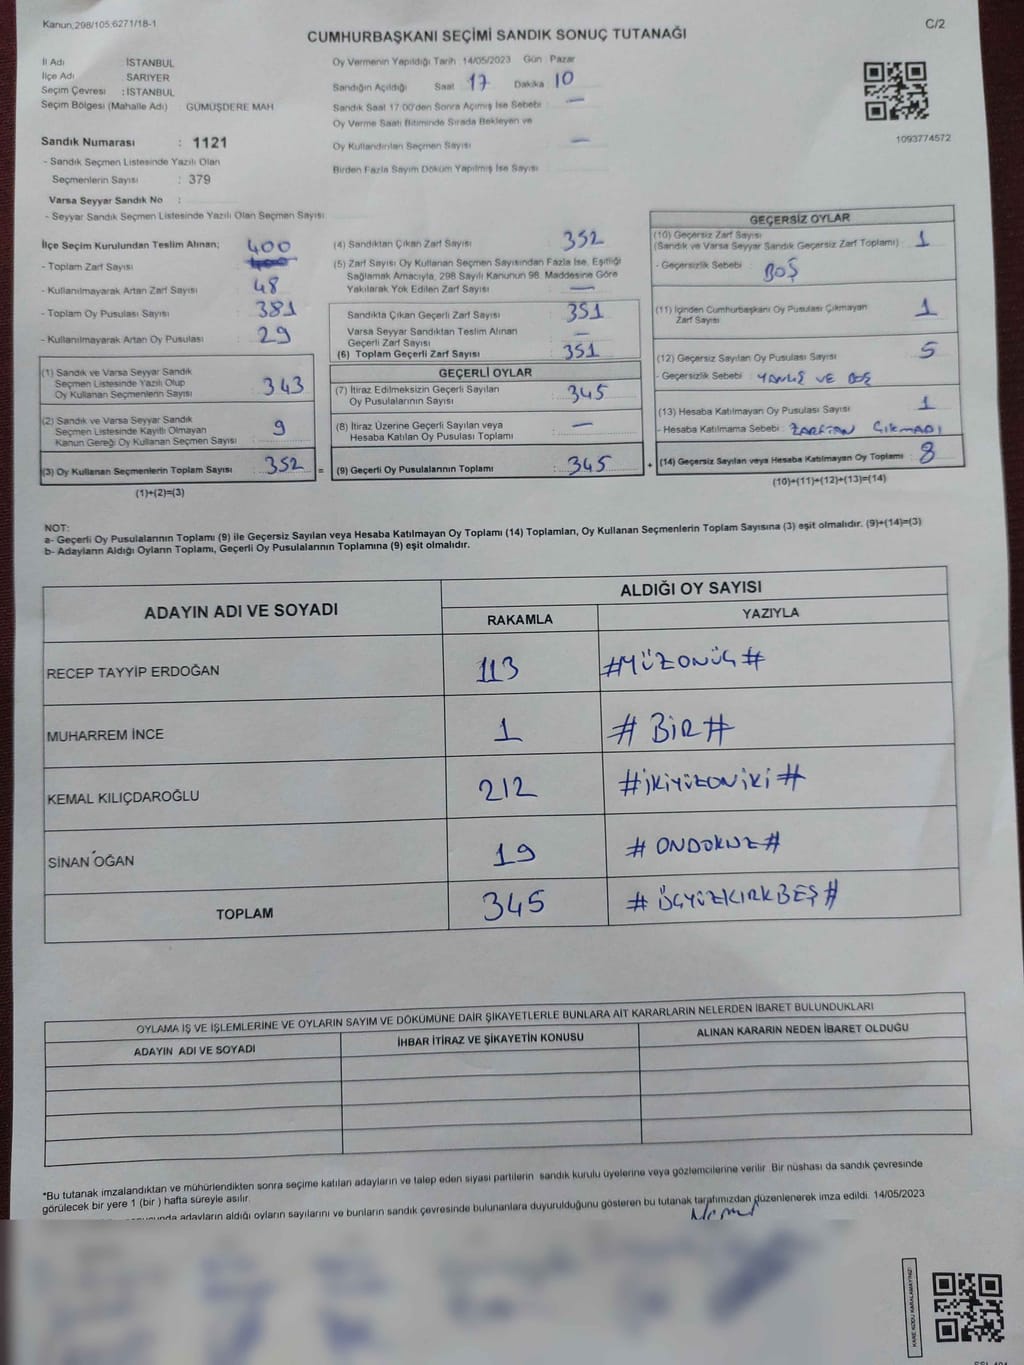 Kanun,298/105,6271/18-1
C/2
CUMHURBAŞKANI SEÇİMİ SANDIK SONUÇ TUTANAĞI
İl Adı : İSTANBUL
İlçe Adı : SARIYER
Seçim Çevresi : İSTANBUL
Seçim Bölgesi (Mahalle Adı) : GÜMÜŞDERE MAH
Sandık Numarası : 1121
- Sandık Seçmen Listesinde Yazılı Olan
Seçmenlerin Sayısı : 379
Varsa Seyyar Sandık No :
- Seyyar Sandık Seçmen Listesinde Yazılı Olan Seçmen Sayısı
Oy Vermenin Yapıldığı Tarih 14/05/2023 Gün Pazar
Sandığın Açıldığı Saat 17 Dakika 10
Sandık Saat 17:00'den Sonra Açımış İse Sebebi : —
Oy Verme Saati Bitiminde Sırada Bekleyen ve
Oy Kullandırılan Seçmen Sayısı —
Birden Fazla Sayım Döküm Yapılmış İse Sayısı
1093774572
İlçe Seçim Kurulundan Teslim Alınan; 400
- Toplam Zarf Sayısı :
- Kullanılmayarak Artan Zarf Sayısı : 48
- Toplam Oy Pusulası Sayısı : 381
- Kullanılmayarak Artan Oy Pusulası : 29
(1) Sandık ve Varsa Seyyar Sandık
Seçmen Listesinde Yazılı Olup
Oy Kullanan Seçmenlerin Sayısı : 343
(2) Sandık ve Varsa Seyyar Sandık
Seçmen Listesinde Kayıtlı Olmayan
Kanun Gereği Oy Kullanan Seçmen Sayısı : 9
(3) Oy Kullanan Seçmenlerin Toplam Sayısı : 352 =
(1)+(2)=(3)
(4) Sandıktan Çıkan Zarf Sayısı : 352
(5) Zarf Sayısı Oy Kullanan Seçmen Sayısından Fazla İse, Eşitliği
Sağlamak Amacıyla, 298 Sayılı Kanunun 98. Maddesine Göre
Yakılarak Yok Edilen Zarf Sayısı : —
Sandıkta Çıkan Geçerli Zarf Sayısı : 351
Varsa Seyyar Sandıktan Teslim Alınan
Geçerli Zarf Sayısı : —
(6) Toplam Geçerli Zarf Sayısı : 351
GEÇERLİ OYLAR
(7) İtiraz Edilmeksizin Geçerli Sayılan
Oy Pusulalarının Sayısı : 345
(8) İtiraz Üzerine Geçerli Sayılan veya
Hesaba Katılan Oy Pusulası Toplamı : —
(9) Geçerli Oy Pusulalarının Toplamı : 345 +
GEÇERSİZ OYLAR
(10) Geçersiz Zarf Sayısı
(Sandık ve Varsa Seyyar Sandık Geçersiz Zarf Toplamı) : 1
- Geçersizlik Sebebi : BOŞ
(11) İçinden Cumhurbaşkanı Oy Pusulası Çıkmayan
Zarf Sayısı : 1
(12) Geçersiz Sayılan Oy Pusulası Sayısı : 5
- Geçersizlik Sebebi : YANLIŞ VE BOŞ
(13) Hesaba Katılmayan Oy Pusulası Sayısı : 1
- Hesaba Katılmama Sebebi : ZARFTAN ÇIKMADI
(14) Geçersiz Sayılan veya Hesaba Katılmayan Oy Toplamı : 8
(10)+(11)+(12)+(13)=(14)
NOT:
a- Geçerli Oy Pusulalarının Toplamı (9) ile Geçersiz Sayılan veya Hesaba Katılmayan Oy Toplamı (14) Toplamları, Oy Kullanan Seçmenlerin Toplam Sayısına (3) eşit olmalıdır. (9)+(14)=(3)
b- Adayların Aldığı Oyların Toplamı, Geçerli Oy Pusulalarının Toplamına (9) eşit olmalıdır.
ADAYIN ADI VE SOYADI
ALDIĞI OY SAYISI
RAKAMLA YAZIYLA
RECEP TAYYİP ERDOĞAN 113 #YÜZONÜÇ#
MUHARREM İNCE 1 #BİR#
KEMAL KILIÇDAROĞLU 212 #İKİYÜZONİKİ#
SİNAN OĞAN 19 #ONDOKUZ#
TOPLAM 345 #ÜÇYÜZKIRKBEŞ#
OYLAMA İŞ VE İŞLEMLERİNE VE OYLARIN SAYIM VE DÖKÜMÜNE DAİR ŞİKAYETLERLE BUNLARA AİT KARARLARIN NELERDEN İBARET BULUNDUKLARI
ADAYIN ADI VE SOYADI İHBAR İTİRAZ VE ŞİKAYETİN KONUSU ALINAN KARARIN NEDEN İBARET OLDUĞU
*Bu tutanak imzalandıktan ve mühürlendikten sonra seçime katılan adayların ve talep eden siyasi partilerin sandık kurulu üyelerine veya gözlemcilerine verilir Bir nüshası da sandık çevresinde
görülecek bir yere 1 (bir ) hafta süreyle asılır.
adayların aldığı oyların sayılarını ve bunların sandık çevresinde bulunanlara duyurulduğunu gösteren bu tutanak tarafımızdan düzenlenerek imza edildi. 14/05/2023